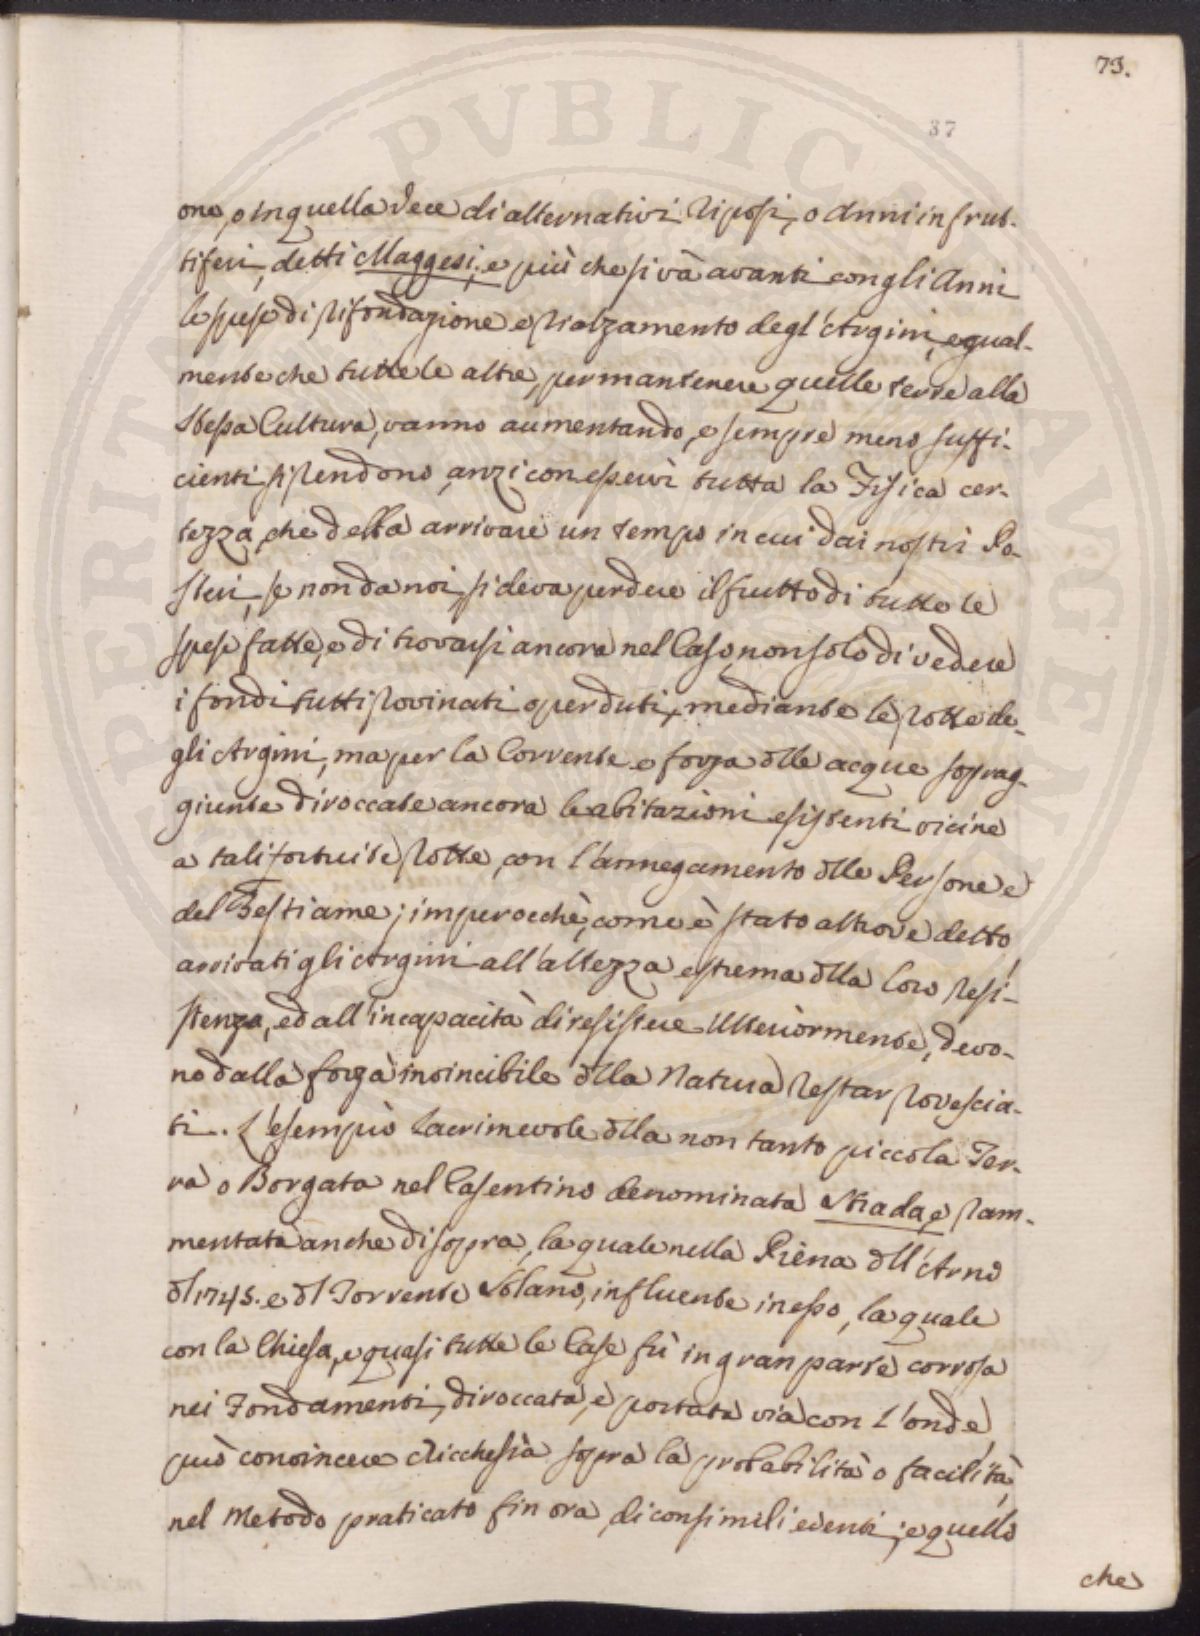 73.
37
one, o in quella vece di alternativi riposi, o Anni infrut-
tiferi, detti Maggesi; e più che si và avanti con gli Anni
le spese di rifondazione e rialzamento degl'Argini, egual-
mente che tutte le altre, per mantenere quelle terre alla
stessa Cultura, vanno aumentando, e sempre meno suffi-
cienti si rendono, anzi con esservi tutta la Fisica cer-
tezza, che debba arrivare un tempo in cui dai nostri Po-
steri, se non da noi, si deva perdere il frutto di tutte le
spese fatte, e di trovarsi ancora nel Caso, non solo di vedere
i fondi tutti rovinati o perduti, mediante le rotte de-
gli Argini, ma per la Corrente e forza dlle acque soprag-
giunte diroccate ancora le abitazioni esistenti vicine
a tali fortuite rotte, con l'annegamento dlle Persone e
del Bestiame; imperocchè, come è stato altrove detto,
arrivati gli Argini all'altezza estrema dlla loro resi-
stenza, ed all'incapacità di resistere Ulteriormente, devo-
no dalla forza invincibile dlla Natura restar rovescia-
ti. L'esempio lacrimevole dlla non tanto piccola Ter-
ra o Borgata nel Casentino denominata Strada, e ram-
mentata anche di sopra, la quale nella Piena dll'Arno
dl 1745. e dl Torrente Solano, influente in esso, la quale
con la Chiesa, e quasi tutte le Case fù in gran parte corrosa
nei Fondamenti, diroccata, e portata via con l'onde,
può convincere chicchesia sopra la probabilità o facilità,
nel Metodo praticato fin ora, di consimili eventi; e quello
che
PERITAE PVBLICAE AVGENDAE